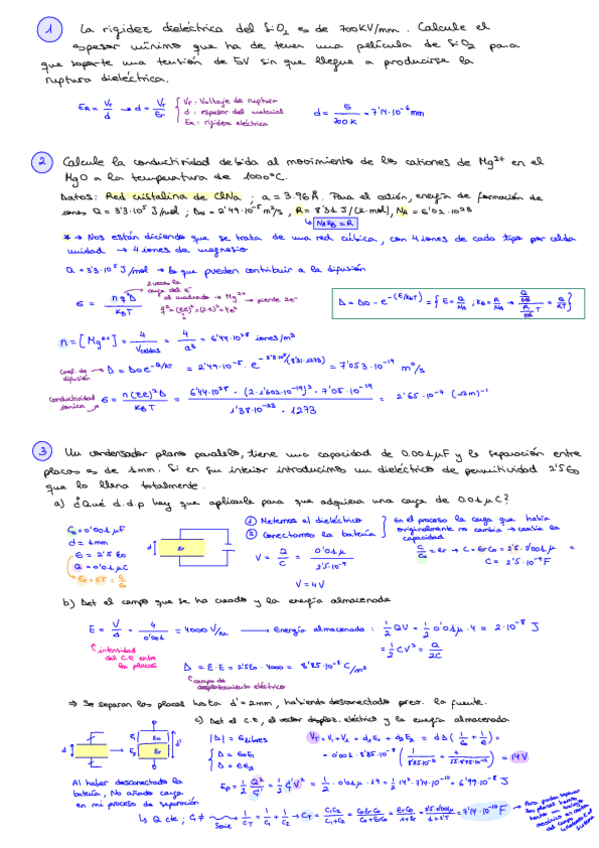 1 La rigidez dieléctrica del SiO₂ es de 700KV/mm. Calcule el
espesor mínimo que ha de tener una película de SiO₂ para
que soporte una tensión de 5V sin que llegue a producirse la
ruptura dieléctrica.
Er = Vr/d → d = Vr/Er { Vr: Voltaje de ruptura
d: espesor del material
Er: rigidez eléctrica
d = 5/700K = 7'14·10⁻⁶ mm
2 Calcule la conductividad debida al movimiento de los cationes de Mg²⁺ en el
MgO a la temperatura de 1000ºC.
Datos: Red cristalina de ClNa ; a = 3.96 Å. Para el catión, energía de formación de
iones Q = 3'3·10⁵ J/mol ; D₀ = 2'49·10⁻⁵ m²/s , R = 8'31 J/(K·mol), NA = 6'02·10²³
↳ NAKB = R
* → Nos están diciendo que se trata de una red cúbica, con 4 iones de cada tipo por celda
unidad → 4 iones de magnesio
Q = 3'3·10⁵ J/mol → lo que pueden contribuir a la difusión
carga del e⁻
al cuadrado → Mg²⁺ → pierde 2e⁻
σ = nq²D/KBT
q² = (ze)² = (2e)² = 4e²
D = D₀ - e^-(E/KBT) = { E = Q/NA ; KB = R/NA → = Q/RT }
n = [Mg²⁺] = 4/Vceldas = 4/a³ = 6'44·10²⁸ iones/m³
coef. de difusión → D = D₀e^-Q/RT = 2'49·10⁻⁵ · e^-3'3·10⁵/(8'31·1273) = 7'053·10⁻¹⁹ m²/s
Conductividad iónica → σ = n(ze)²D/KBT = 6'44·10²⁸ · (2·1'602·10⁻¹⁹)² · 7'05·10⁻¹⁹ / 1'38·10⁻²³ · 1273 = 2'65·10⁻⁷ (Ωm)⁻¹
3 Un condensador plano paralelo, tiene una capacidad de 0.001μF y la separación entre
placas es de 1mm. Si en su interior introducimos un dieléctrico de permitividad 2'5ε₀
que lo llena totalmente.
a) ¿Qué d.d.p hay que aplicarle para que adquiera una carga de 0.01μC?
C₀ = 0'001μF
d = 1mm
ε = 2'5 ε₀
Q = 0'01μC
εr = 2'5 = ε/ε₀
d εr
① Metemos el dieléctrico
② Conectamos la batería
En el proceso la carga que había
originalmente no cambia → cambia la
capacidad
V = Q/C = 0'01μ/2'5·10⁻⁹
V = 4V
C/C₀ = εr → C = εrC₀ = 2'5·0'001μ =
C = 2'5·10⁻⁹F
b) Det el campo que se ha creado y la energía almacenada
E = V/d = 4/0'001 = 4000 V/m → Energía almacenada: 1/2 QV = 1/2 0'01μ · 4 = 2·10⁻⁸ J
= 1/2 CV² = Q²/2C
intensidad
del C.E entre
las placas
D = ε·E = 2'5ε₀·4000 = 8'85·10⁻⁸ C/m²
campo de
desplazamiento eléctrico
⇒ Se separan las placas hasta d' = 2mm, habiendo desconectado prev. la fuente.
c) Det el C.E, el vector desplaz. eléctrico y la energía almacenada
Al haber desconectado la
batería, No añado carga
en mi proceso de separación
VT = V₁+V₂ = = 14V